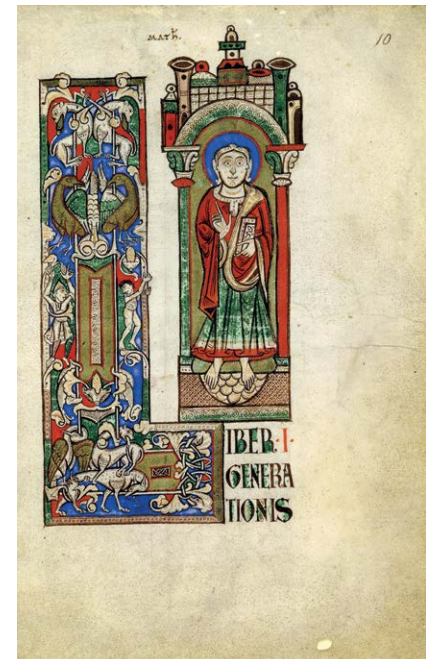 MATH.
10
LIBER · I ·
GENERA
TIONIS